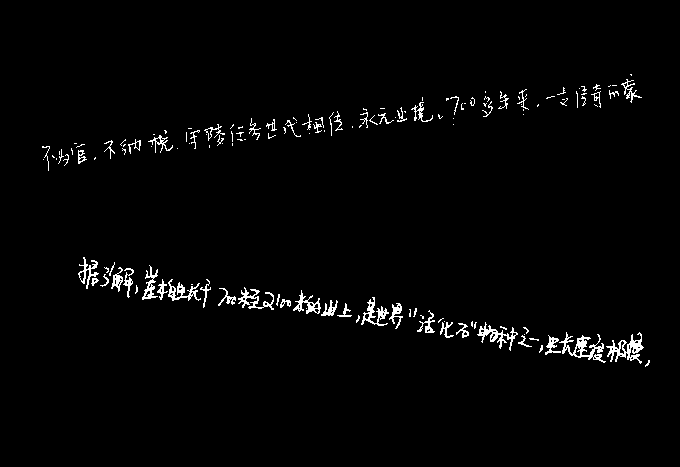 不为官、不纳税、守陵任务世代相传、永无止境。700多年来，一支传奇的蒙
据了解，崖柏生长于700米至2100米的山上，是世界"活化石"物种之一，生长速度极慢，